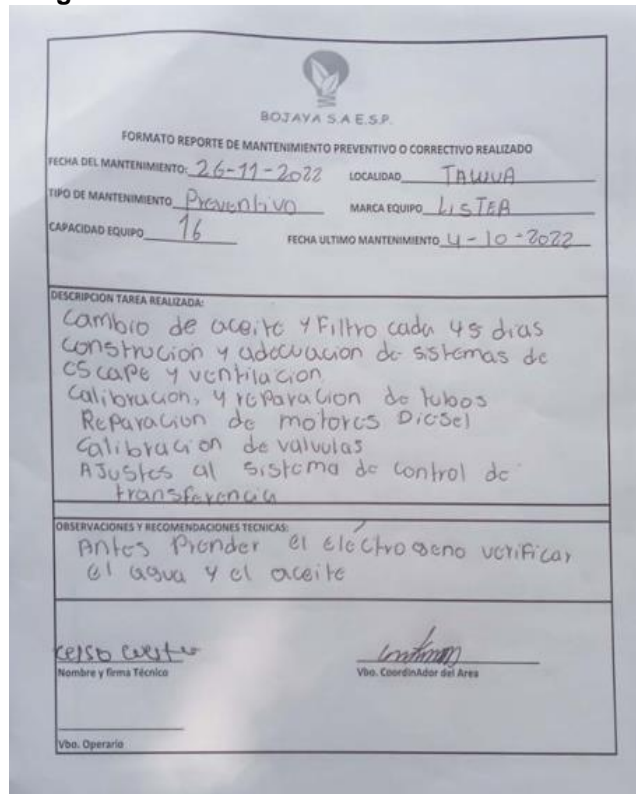 BOJAYA S.A E.S.P.
FORMATO REPORTE DE MANTENIMIENTO PREVENTIVO O CORRECTIVO REALIZADO
FECHA DEL MANTENIMIENTO: 26-11-2022 LOCALIDAD
TIPO DE MANTENIMIENTO Preventivo MARCA EQUIPO LISTER
CAPACIDAD EQUIPO 16 FECHA ULTIMO MANTENIMIENTO 4-10-2022
DESCRIPCIÓN TAREA REALIZADA:
Cambio de aceite y Filtro cada 45 dias
construcion y adecuacion de sistemas de
escape y ventilacion
Calibracion, y reparacion de tubos
Reparacion de motores Diesel
Calibracion de valvulas
AJustes al sistema de control de
transferencia
OBSERVACIONES Y RECOMENDACIONES TECNICAS:
Antes Prender el eléctrogeno verificar
el agua y el aceite
Nombre y firma Técnico Vbo. CoordinAdor del Area
Vbo. Operario